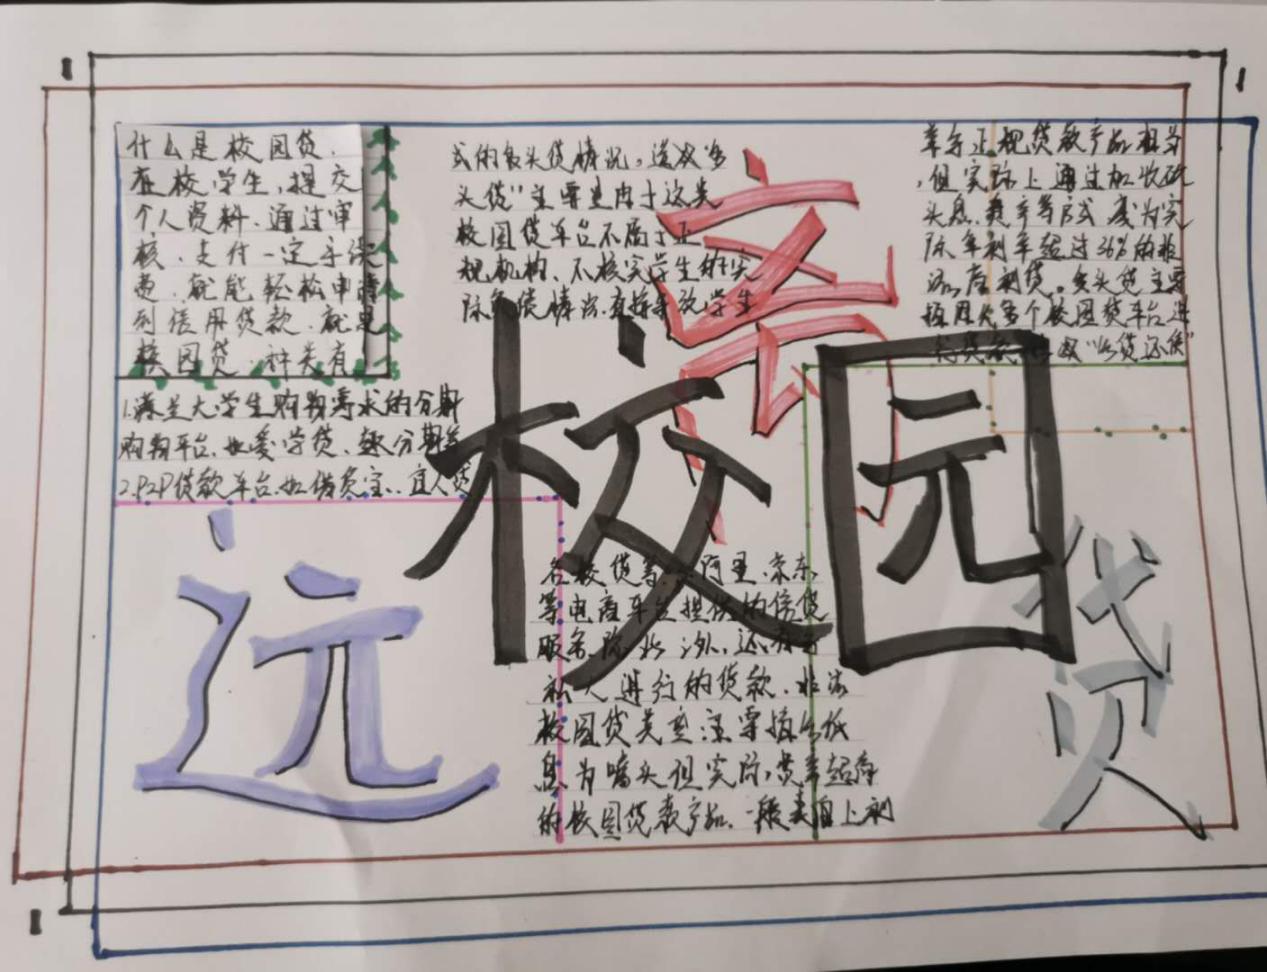 什么是校园贷.
在校学生,提交
个人资料、通过审
核、支付一定手续
费、就能轻松申请
到信用贷款、就是
校园贷.种类有
1.满足大学生购物需求的分期
购物平台、如爱学贷、趣分期等
2.P2P贷款平台.如借贷宝、宜人贷
名校贷等、阿里、京东
等电商平台提供的信贷
服务.除此之外、还有
私人进行的贷款、非法
校园贷类型主要指以低
息为噱头但实际
的校园贷款产品、一般表面上利
式的多头贷情况,造成"多
头贷"主要是由于这类
校园贷平台不属于正
规机构、不核实学生的实
际负债情况、直接
率与正规贷款产品相当
,但实际上通过加收砍
头息、费率等方式 变为实
际年利率超过36%的非
法高利贷。多头贷主要
指同从多个校园贷平台进
"以贷还债"
远
离
校园
贷